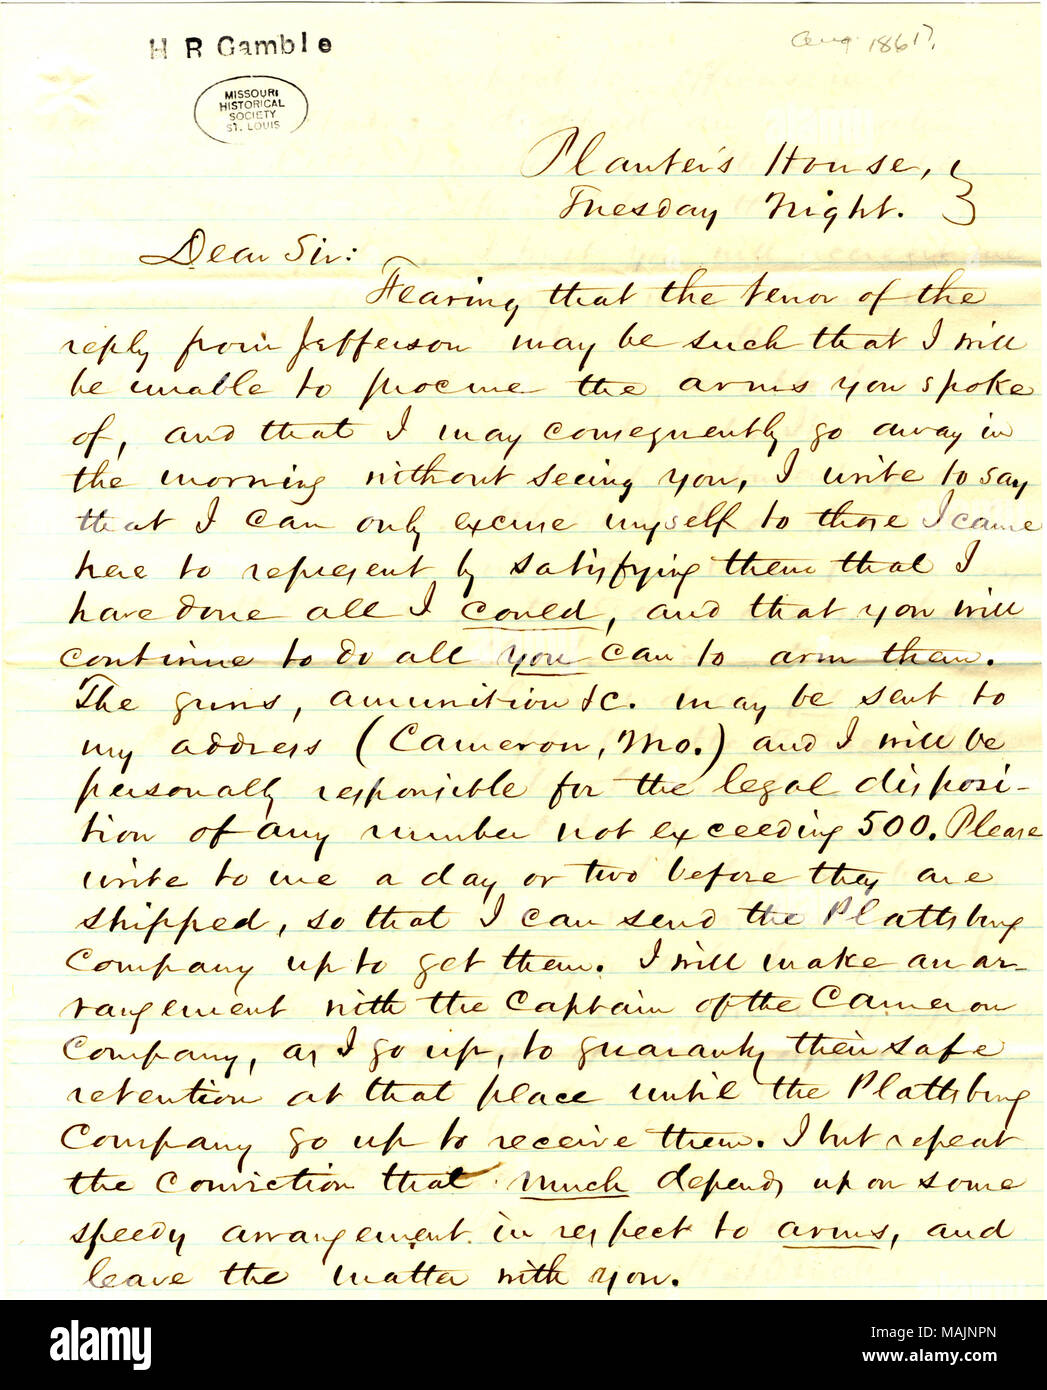 H R Gamble
Aug. 1861?
MISSOURI
HISTORICAL
SOCIETY
ST. LOUIS
Planter's House,
Tuesday Night.
Dear Sir:
Fearing that the tenor of the
reply from Jefferson may be such that I will
be unable to procure the arms you spoke
of, and that I may consequently go away in
the morning without seeing you, I write to say
that I can only excuse myself to those I came
here to represent by satisfying them that I
have done all I could, and that you will
continue to do all you can to arm them.
The guns, ammunition &c. may be sent to
my address (Cameron, Mo.) and I will be
personally responsible for the legal disposi-
tion of any number not exceeding 500. Please
write to me a day or two before they are
shipped, so that I can send the Plattsburg
Company up to get them. I will make an ar-
rangement with the Captain of the Cameron
Company, as I go up, to guaranty their safe
retention at that place until the Plattsburg
Company go up to receive them. I but repeat
the conviction that much depends upon some
speedy arrangement in respect to arms, and
leave the matter with you.
alamy
Image ID: MAJNPN
www.alamy.com